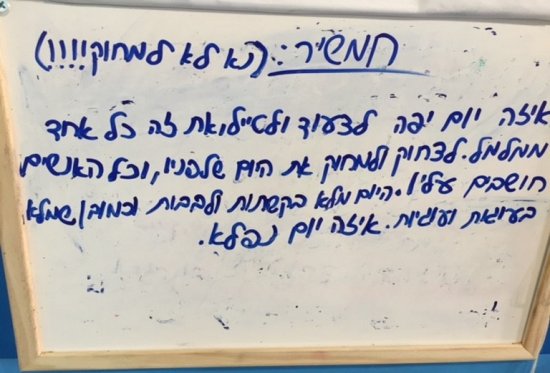 חמשיר: (נא לא למחוק!!!!)
איזה יום יפה לצעוד ולטייל, את זה כל אחד
ממלמל. לצחוק ולמחוק את היום שלפניו, וכל האנשים
חושבים עליו. היום מלא בקשתות ולבבות וכמובן שמלא
בעוגות ועוגיות. איזה יום נפלא.